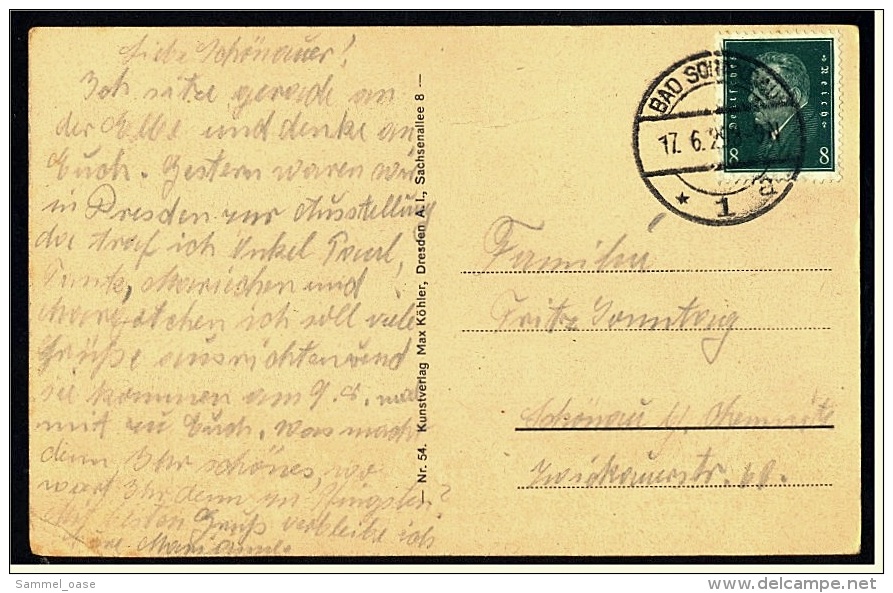 Liebe Schönauer!
Ich sitze gerade an
der Elbe und denke an
Euch. Gestern waren wir
in Dresden zur Ausstellung
da traf ich Onkel Paul,
Tante, Mariechen und
ich soll viele
Grüße ausrichten und
sie kommen am 9. 8. mal
mit zu Euch. Was macht
denn Ihr schönes, wo
wart Ihr denn zu Pfingsten?
Mit besten Gruß verbleibe ich
Eure Marianne.
— Nr. 54. Kunstverlag Max Köhler, Dresden A. I., Sachsenallee 8 —
BAD SCHANDAU
17. 6. 29
* 1 a
Deutsches Reich
8 8
Familie
Fritz Sonntag
Schönau b/. Chemnitz
Zwickauerstr. 60.
Sammel_oase
www.delcampe.net